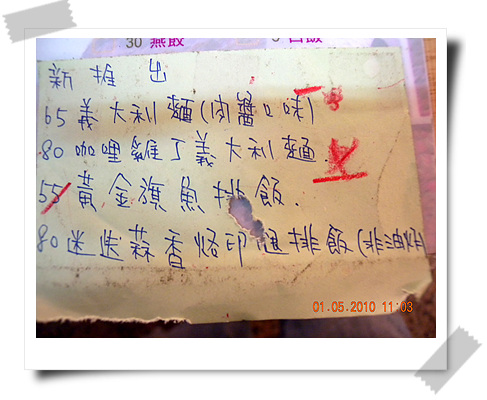 30 燕餃
白飯
新推出
65 義大利麵(肉醬口味)
80 咖哩雞丁義大利麵
55 黃金旗魚排飯.
80 迷迭蒜香烙印腿排飯(非油炸)
01.05.2010 11:03